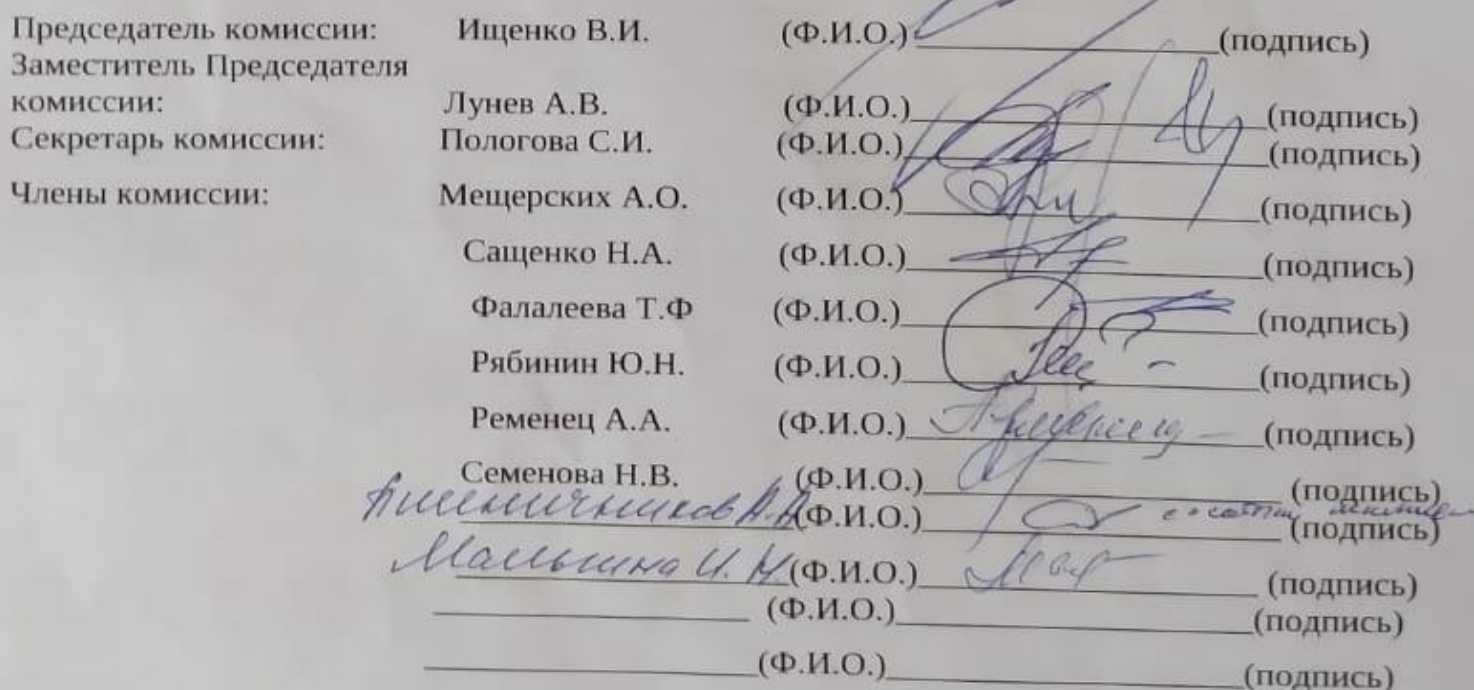 Председатель комиссии: Ищенко В.И. (Ф.И.О.) (подпись)
Заместитель Председателя
комиссии: Лунев А.В. (Ф.И.О.) (подпись)
Секретарь комиссии: Пологова С.И. (Ф.И.О.) (подпись)
Члены комиссии: Мещерских А.О. (Ф.И.О.) (подпись)
Сащенко Н.А. (Ф.И.О.) (подпись)
Фалалеева Т.Ф (Ф.И.О.) (подпись)
Рябинин Ю.Н. (Ф.И.О.) (подпись)
Ременец А.А. (Ф.И.О.) (подпись)
Семенова Н.В. (Ф.И.О.) (подпись)
Пшеничников А.А (Ф.И.О.) (подпись)
Малышна И.Н (Ф.И.О.) (подпись)
(Ф.И.О.) (подпись)
(Ф.И.О.) (подпись)